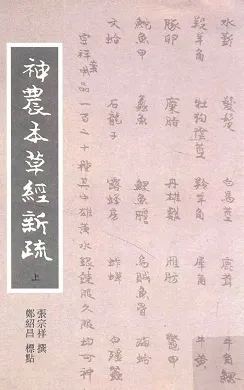 神農本草經新疏
上
張宗祥 撰
鄭紹昌 標點
水蘄 髮髲 白馬莖 鹿茸 牛角䚡
羖羊角 牡狗陰莖 羚羊角 犀角 牛黃
豚卵 麋脂 丹雄雞 雁肪 鱉甲
鮀魚甲 蠡魚 鯉魚膽 烏賊魚骨 海蛤
文蛤 石龍子 露蜂房 蚱蟬 白殭蠶
品一百二十種其中雄黃水銀 服久服均可神